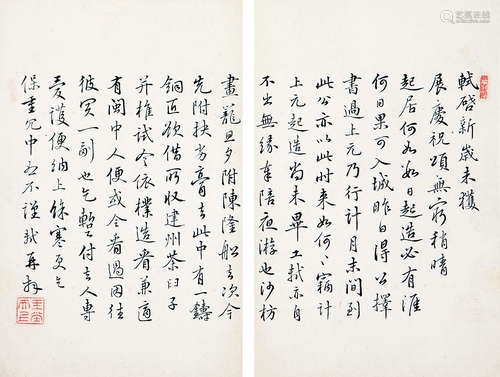 軾啓新歲未獲
展慶祝頌無窮稍晴
起居何如數日起造必有涯
何日果可入城昨日得公擇
書過上元乃行計月末間到
此公亦以此時来如何〻竊計
上元起造尚未畢工軾亦自
不出無緣奉陪夜游也沙枋
畫籠旦夕附陳隆船去次今
先附扶劣膏去此中有一鑄
銅匠欲借所收建州茶臼子
并椎試令依樣造看兼適
有閩中人便或令看過因往
彼買一副也乞暫付去人專
愛護便納上餘寒更乞
保重冗中恕不謹軾再拜